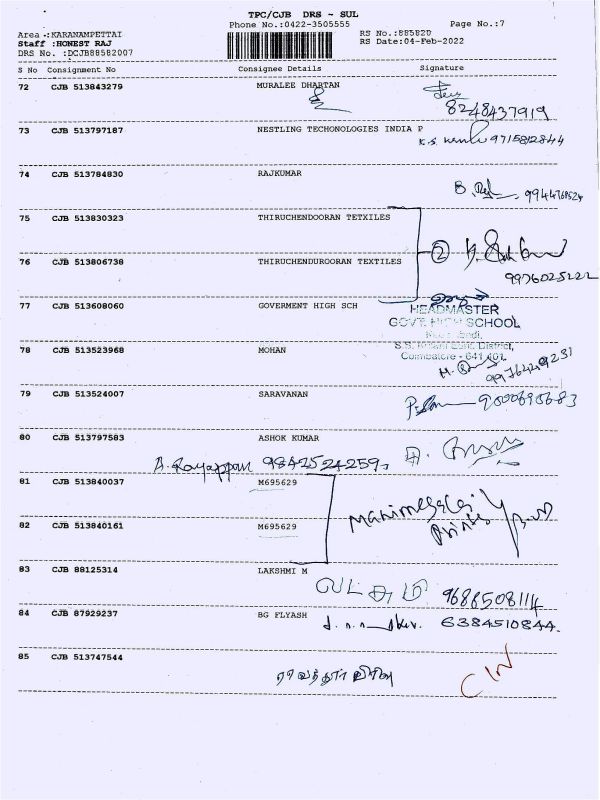 TPC/CJB DRS ~ SUL
Phone No.:0422-3505555 Page No.:7
Area :KARANAMPETTAI RS No.:885820
Staff :HONEST RAJ RS Date:04-Feb-2022
DRS No. :DCJB88582007
S No Consignment No Consignee Details Signature
72 CJB 513843279 MURALEE DHARTAN
8248437919
73 CJB 513797187 NESTLING TECHONOLOGIES INDIA P
K.S. 9715812844
74 CJB 513784830 RAJKUMAR
B. 9944768524
75 CJB 513830323 THIRUCHENDOORAN TETXILES
2
76 CJB 513806738 THIRUCHENDUROORAN TEXTILES
9976025222
77 CJB 513608060 GOVERMENT HIGH SCH
HEADMASTER
GOVT. HIGH SCHOOL
78 CJB 513523968 MOHAN
Coimbatore - 641 401.
9976449231
79 CJB 513524007 SARAVANAN
9000696683
80 CJB 513797583 ASHOK KUMAR
A. Rayappan 9842524259
81 CJB 513840037 M695629
82 CJB 513840161 M695629
Manimegalai
Prints
83 CJB 88125314 LAKSHMI M
லட்சுமி 9688508114
84 CJB 87929237 BG FLYASH
6384510844.
85 CJB 513747544
CIN